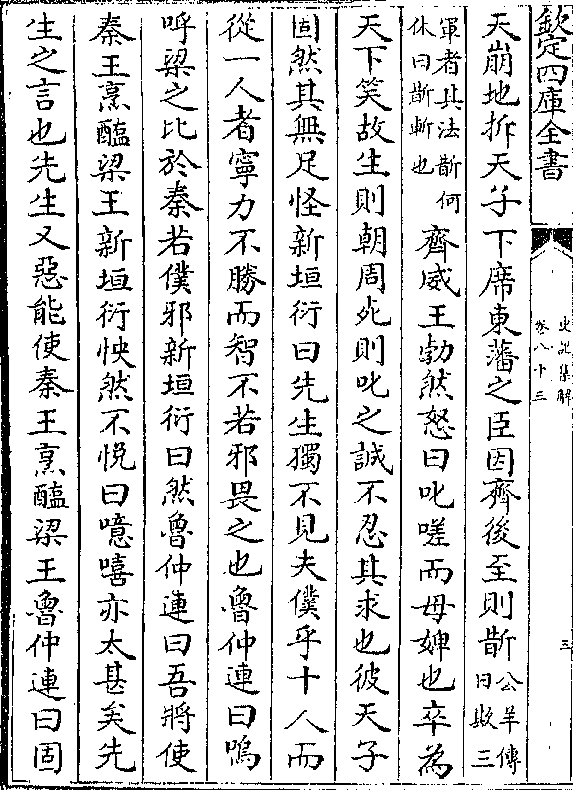 欽定四庫全書
史記集解
卷八十三
三
天崩地拆天子下席東藩之臣因齊後至則斮公羊傳曰欺三
軍者其法斮何休曰斮斬也齊威王勃然怒曰叱嗟而母婢也卒為
天下笑故生則朝周死則叱之誠不忍其求也彼天子
固然其無足怪新垣衍曰先生獨不見夫僕乎十人而
從一人者寧力不勝而智不若邪畏之也魯仲連曰嗚
呼梁之比於秦若僕邪新垣衍曰然魯仲連曰吾將使
秦王烹醢梁王新垣衍怏然不悅曰噫嘻亦太甚矣先
生之言也先生又惡能使秦王烹醢梁王魯仲連曰固